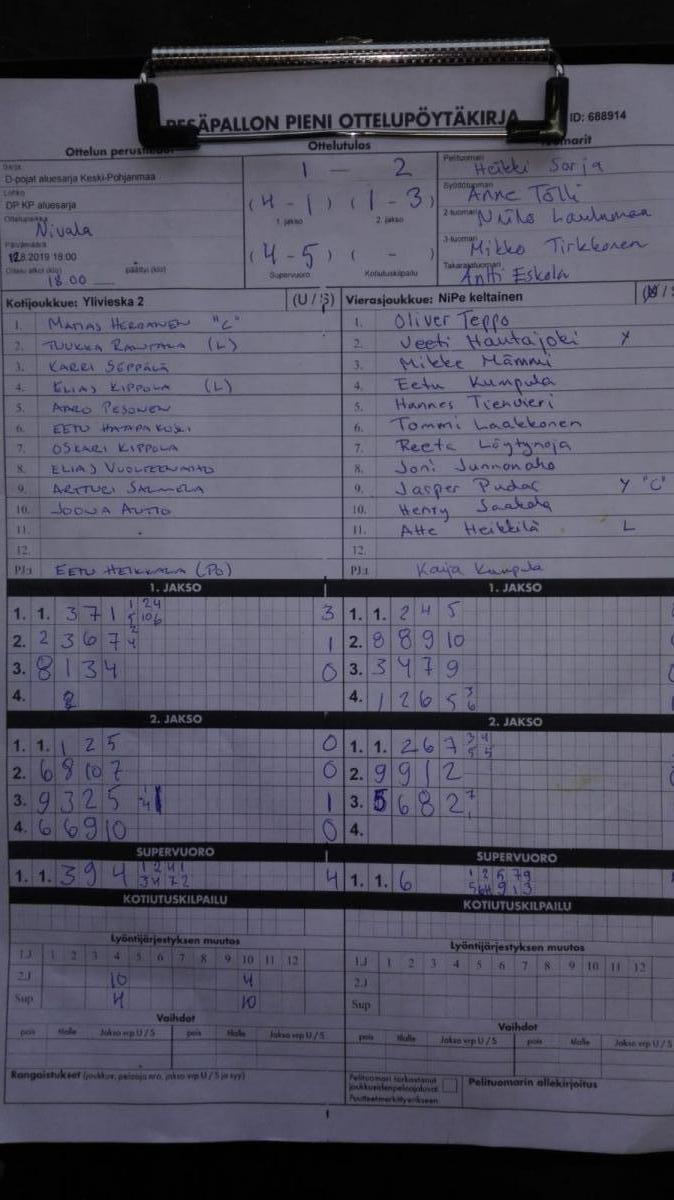 PESÄPALLON PIENI OTTELUPÖYTÄKIRJA
ID: 688914
Ottelun perustiedot
Ottelutulos
Sarja
D-pojat aluesarja Keski-Pohjanmaa
Lohko
DP KP aluesarja
Ottelupaikka
Nivala
Päivämäärä
12.8.2019 18:00
Ottelu alkoi (klo) päättyi (klo)
18.00
1 — 2
(4 - 1) (1 - 3)
1. jakso 2. jakso
(4 - 5) ( - )
Supervuoro Kotiutuskilpailu
Pelituomari
Heikki Sorja
Syöttötuomari
Anne Tölli
2-tuomari
3-tuomari
Mikko Tirkkonen
Takarajatuomari
Antti Eskola
Kotijoukkue: Ylivieska 2 (U / S)
1. MATIAS "C"
2. TUUKKA RANTALA (L)
3. KARRI SEPPÄLÄ
4. ELIAS KIPPOLA (L)
5. AARO PESONEN
6. EETU HAAPAKOSKI
7. OSKARI KIPPOLA
8. ELIAS VUOLTEENAHO
9. ARTTURI SALMELA
10. JOONA AUTIO
11.
12.
PJ:1 EETU HEIKKALA (PJ)
Vierasjoukkue: NiPe keltainen
1. Oliver Teppo
2. Veeti Hautajoki Y
3. Mikke Mämmi
4. Eetu Kumpula
5. Hannes Tienvieri
6. Tommi Laakkonen
7. Reeta Löytynoja
8. Joni Junnonaho
9. Jasper Pudas Y "C"
10. Henry Saakola
11. Atte Heikkilä L
12.
PJ:1 Kaija Kumpula
1. JAKSO
1. 1. 3 7 1 1 2 4 5 10 6 3
2. 2 3 6 7 2 4 1
3. 8 1 3 4 0
4. 2
1. JAKSO
1. 1. 2 4 5
2. 8 8 9 10
3. 3 4 7 9
4. 1 2 6 5 3 6
2. JAKSO
1. 1. 1 2 5 0
2. 6 8 10 7 0
3. 9 3 2 5 1
4. 6 6 9 10 0
2. JAKSO
1. 1. 2 6 7 3 4 5 5
2. 9 9 1 2
3. 5 6 8 2 7 1
4.
SUPERVUORO
1. 1. 3 9 4 1 2 4 1 3 4 7 2 4
SUPERVUORO
1. 1. 6 1 2 5 7 9
KOTIUTUSKILPAILU
KOTIUTUSKILPAILU
Lyöntijärjestyksen muutos
1.J 1 2 3 4 5 6 7 8 9 10 11 12
2.J 10 4
Sup 4 10
Lyöntijärjestyksen muutos
1.J 1 2 3 4 5 6 7 8 9 10 11 12
2.J
Sup
Vaihdot
pois tilalle Jakso vrp U / S pois tilalle Jakso vrp U / S
Vaihdot
pois tilalle Jakso vrp U / S pois tilalle Jakso vrp U / S
Rangaistukset (joukkue, pelaaja nro, jakso vrp U / S ja syy)
Pelituomari tarkastanut
joukkueidenpelaajaluvat
Puutteetmerkittyerikseen
Pelituomarin allekirjoitus